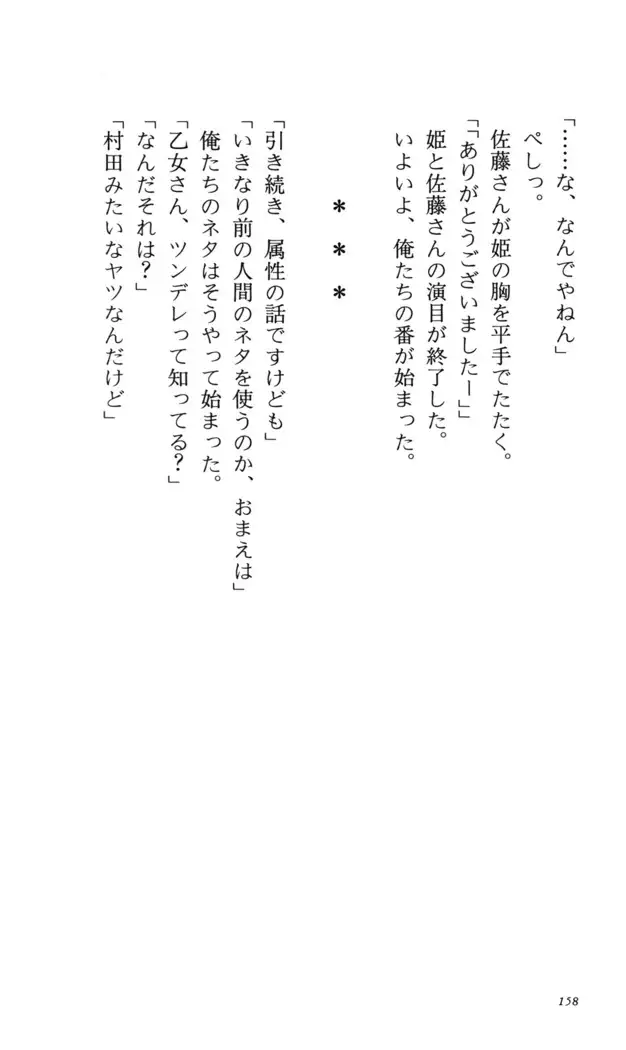 「……な、なんでやねん」
ぺしっ。
佐藤さんが姫の胸を平手でたたく。
「「ありがとうございましたー」」
姫と佐藤さんの演目が終了した。
いよいよ、俺たちの番が始まった。
＊　＊　＊
「引き続き、属性の話ですけども」
「いきなり前の人間のネタを使うのか、おまえは」
俺たちのネタはそうやって始まった。
「乙女さん、ツンデレって知ってる？」
「なんだそれは？」
「村田みたいなヤツなんだけど」
158